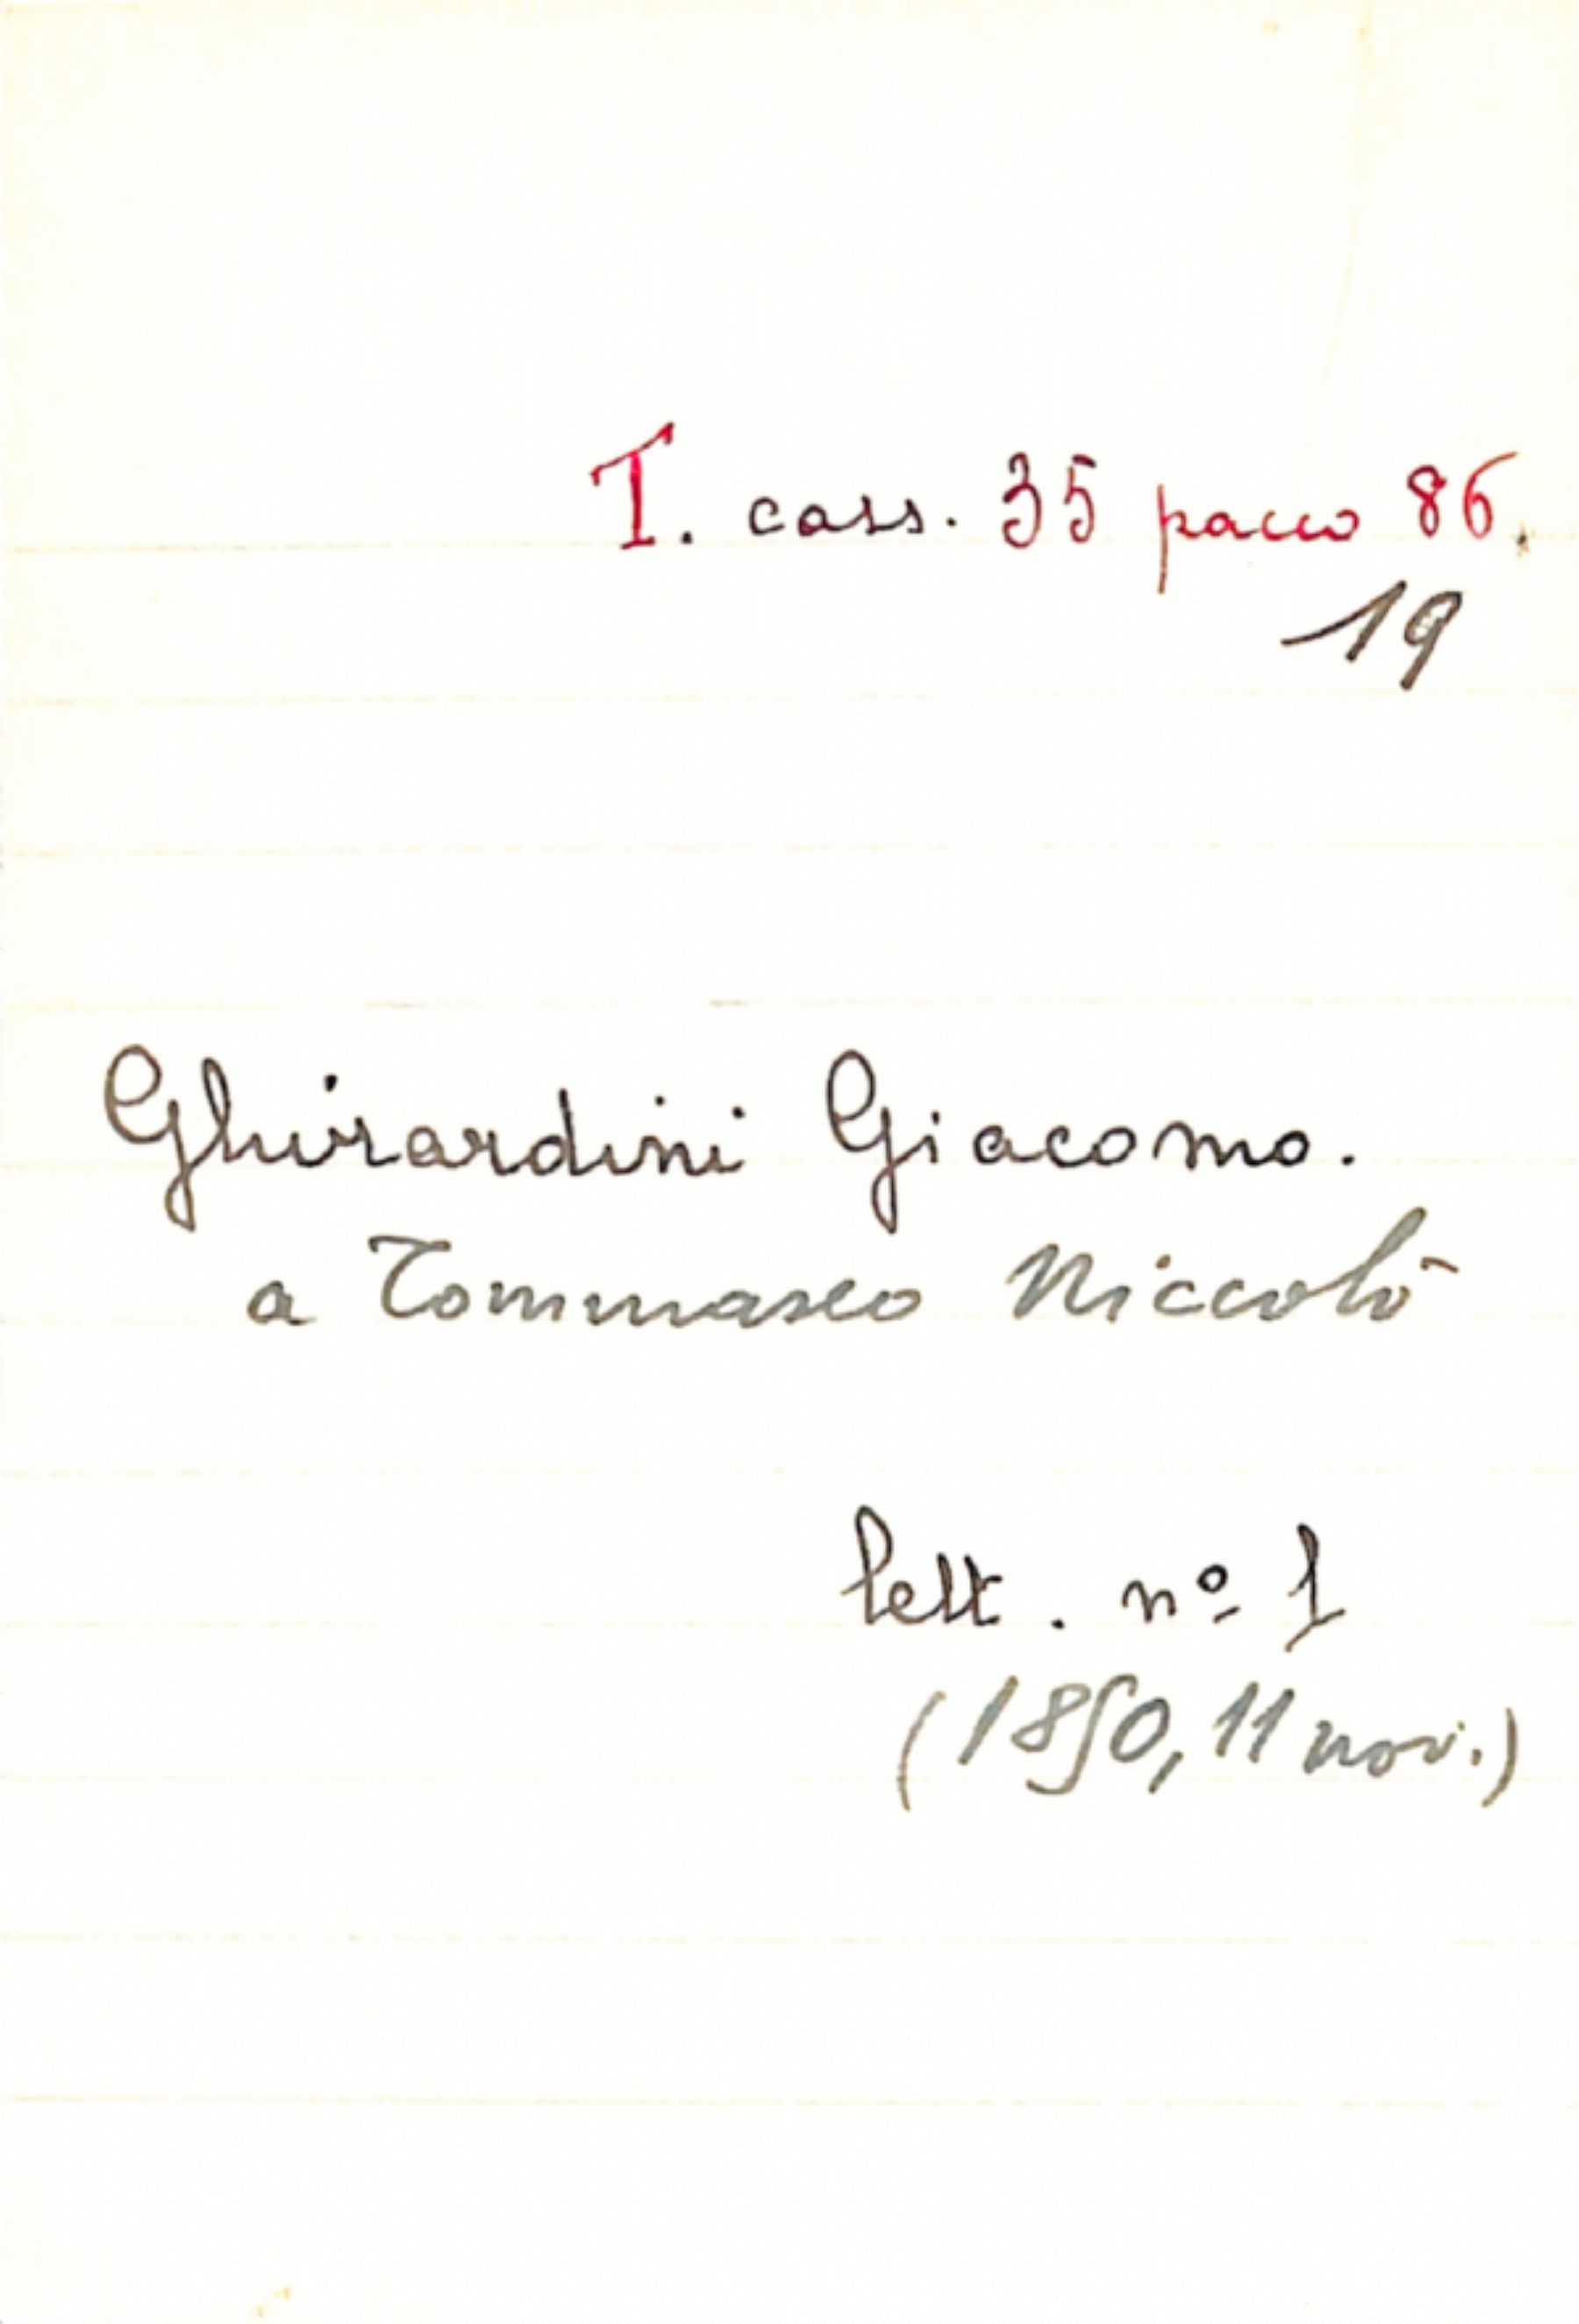 T. cass. 35 pacco 86.
19
Ghirardini Giacomo.
a Tommaseo Niccolò
lett. nº 1
(1850, 11 nov.)